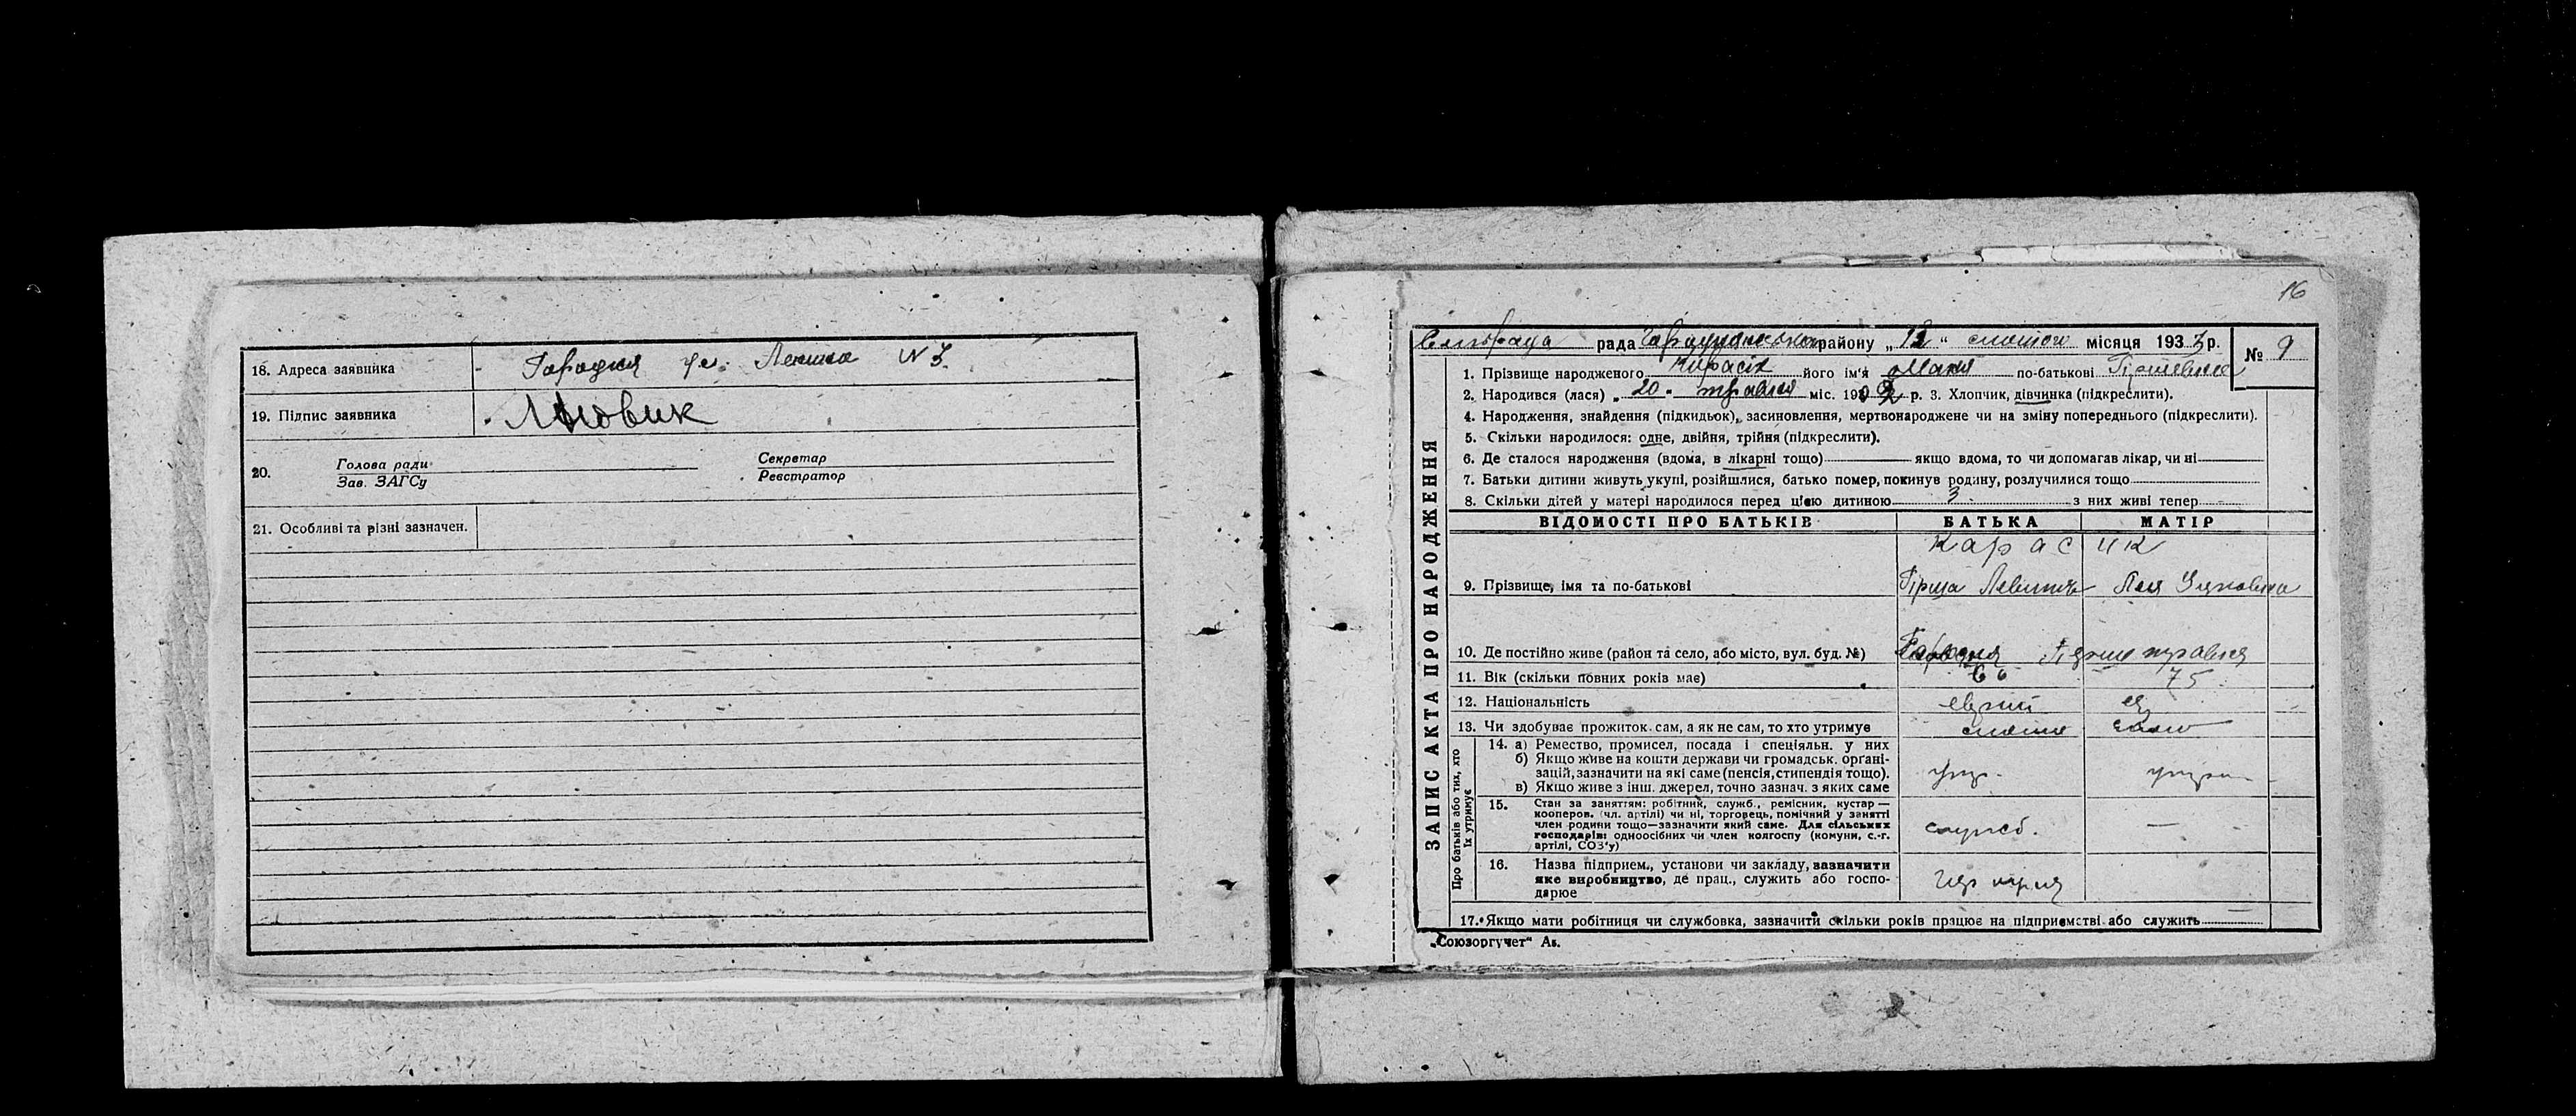 18. Адреса заявника - Городня ул. Ленина N 3
19. Підпис заявника
20. Голова ради Секретар
Зав. ЗАГСу Реєстратор
21. Особливі та різні зазначен.
16
рада району „12“ лютого місяця 1933 р. № 9
1. Прізвище народженого Карасік його ім'я Маня по-батькові Гіршевна
2. Народився (лася) „20 травня міс. 1902 р. 3. Хлопчик, дівчинка (підкреслити).
4. Народження, знайдення (підкидьок), засиновлення, мертвонароджене чи на зміну попереднього (підкреслити).
5. Скільки народилося: одне, двійня, трійня (підкреслити).
6. Де сталося народження (вдома, в лікарні тощо) якщо вдома, то чи допомагав лікар, чи ні
7. Батьки дитини живуть укупі, розійшлися, батько помер, покинув родину, розлучилися тощо
8. Скільки дітей у матері народилося перед цією дитиною 3 з них живі тепер
ЗАПИС АКТА ПРО НАРОДЖЕННЯ
ВІДОМОСТІ ПРО БАТЬКІВ БАТЬКА МАТІР
Карасик
9. Прізвище, імя та по-батькові Гірша Левитъ Лея
10. Де постійно живе (район та село, або місто, вул. буд. №) Городня Перше травня
11. Вік (скільки повних років має) 66 75
12. Національність єврей єв
13. Чи здобуває прожиток сам, а як не сам, то хто утримує
Про батьків або тих, хто їх утримує
14. а) Ремество, промисел, посада і спеціяльн. у них
б) Якщо живе на кошти держави чи громадськ. органі-
зацій, зазначити на які саме (пенсія, стипендія тощо).
в) Якщо живе з інш. джерел, точно зазнач. з яких саме
15. Стан за заняттям: робітник, служб., ремісник, кустар —
кооперов. (чл. артілі) чи ні, торговець, помічний у занятті
член родини тощо—зазначити який саме. Для сільських
господарів: одноосібних чи член колгоспу (комуни, с.-г.
артілі, СОЗ'у) служб. —
16. Назва підприєм., установи чи закладу, зазначити
яке виробництво, де прац., служить або госпо-
дарює
17. Якщо мати робітниця чи службовка, зазначити скільки років працює на підприємстві або служить
„Союзоргучет“ Аз.